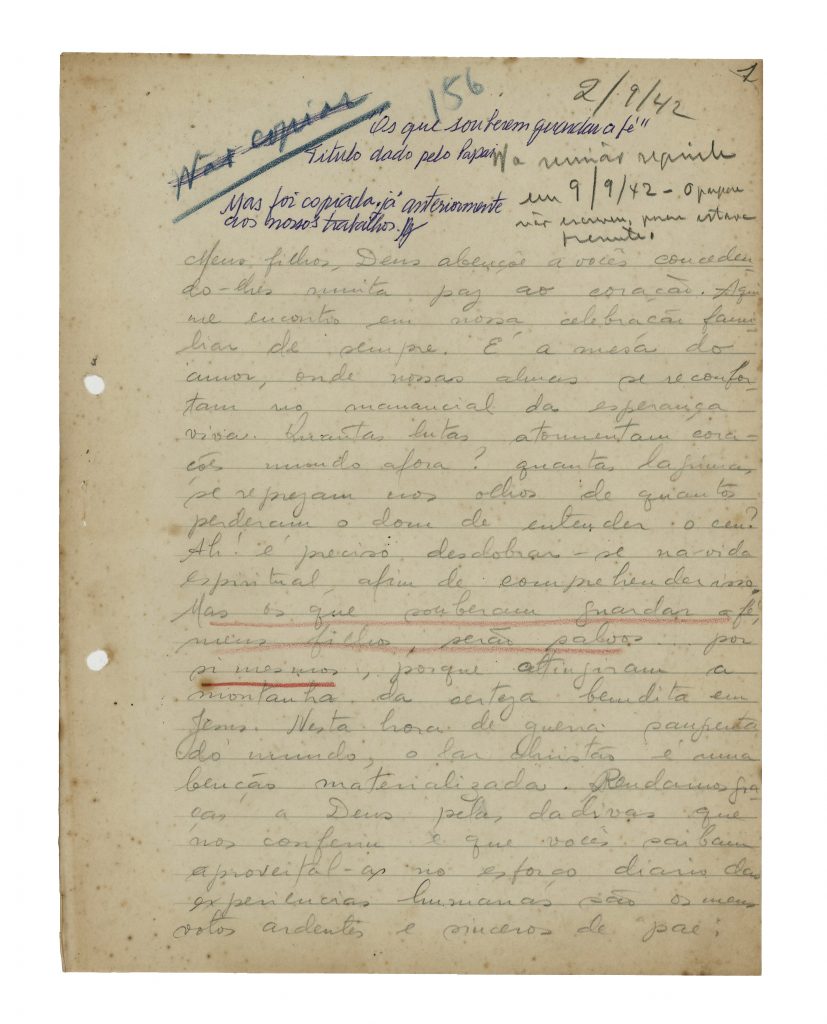 1
156
2/9/42
Não copiar
"Os que souberem guardar a fé"
Titulo dado pelo Papai
Na reunião seguinte
em 9/9/42 - O papai
não escreveu, porem estava
presente.
Mas foi copiada, já anteriormente
aos nossos trabalhos.
Meus filhos, Deus abençõe a vocês conceden-
do-lhes muita paz ao coração. Aqui
me encontro em nossa celebração fami-
liar de sempre. É a mesa do
amor, onde nossas almas se reconfor-
tam no manancial da esperança
viva. Quantas lutas atormentam cora-
ções mundo afora? quantas lagrimas
se represam nos olhos de quantos
perderam o dom de entender o ceu?
Ah! é preciso desdobrar-se na vida
espiritual, afim de comprehender isso.
Mas os que souberam guardar a fé,
meus filhos, serão salvos por
si mesmos, porque attingiram a
montanha da certeza bendita em
Jesus. Nesta hora de guerra sangrenta
do mundo, o lar christão é uma
benção materializada. Rendamos gra-
ças a Deus pelas dadivas que
nos conferiu e que vocês saibam
aproveital-as no esforço diario das
experiencias humanas são os meus
votos ardentes e sinceros de pae.